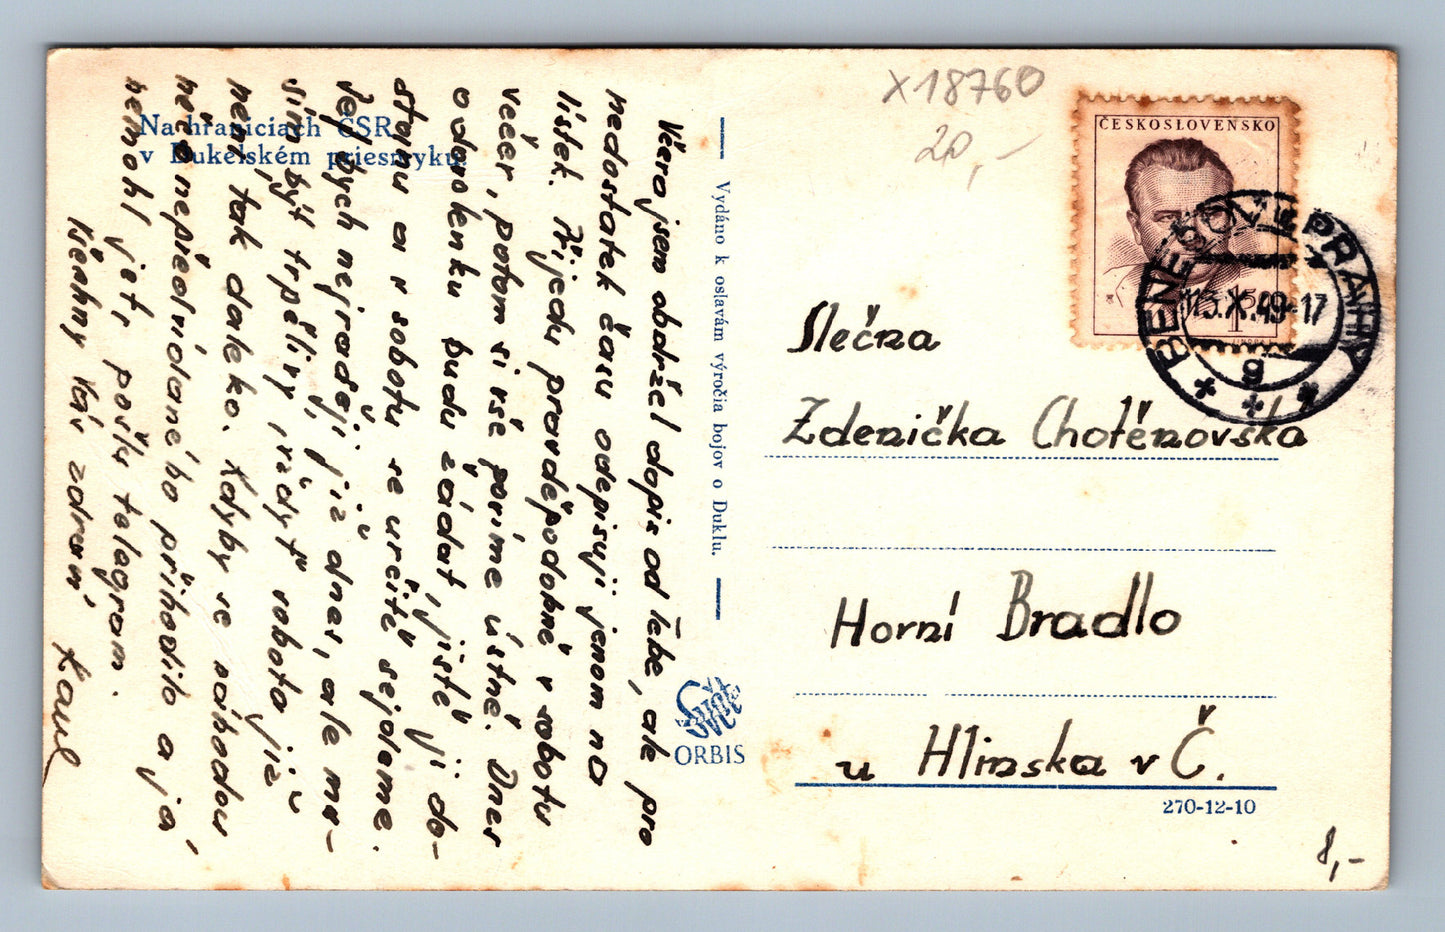 Na hraniciach ČSR
v Dukelském priesmyku.
Včera jsem obdržel dopis od Tebe, ale pro
nedostatek času odepisuji jenom na
lístek. Přijedu pravděpodobně v sobotu
večer, potom si vše povíme ústně. Dnes
o dovolenku budu žádat, jistě ji do-
stanu a v sobotu se určitě sejdeme.
Jel bych nejraději již dnes, ale mu-
sím být trpělivý, vždyť sobota již
není tak daleko. Kdyby se náhodou
něco nepředvídaného přihodilo a já
nemohl jet, pošlu telegram.
Všechny Vás zdraví
Karel
Vydáno k oslavám výročia bojov o Duklu.
ORBIS
x18760
20,-
ČESKOSLOVENSKO
1.50
BENEŠOV U PRAHY
13.X.49-17
g
Slečna
Zdenička Chotěnovska
Horní Bradlo
u Hlinska v Č.
270-12-10
8,-